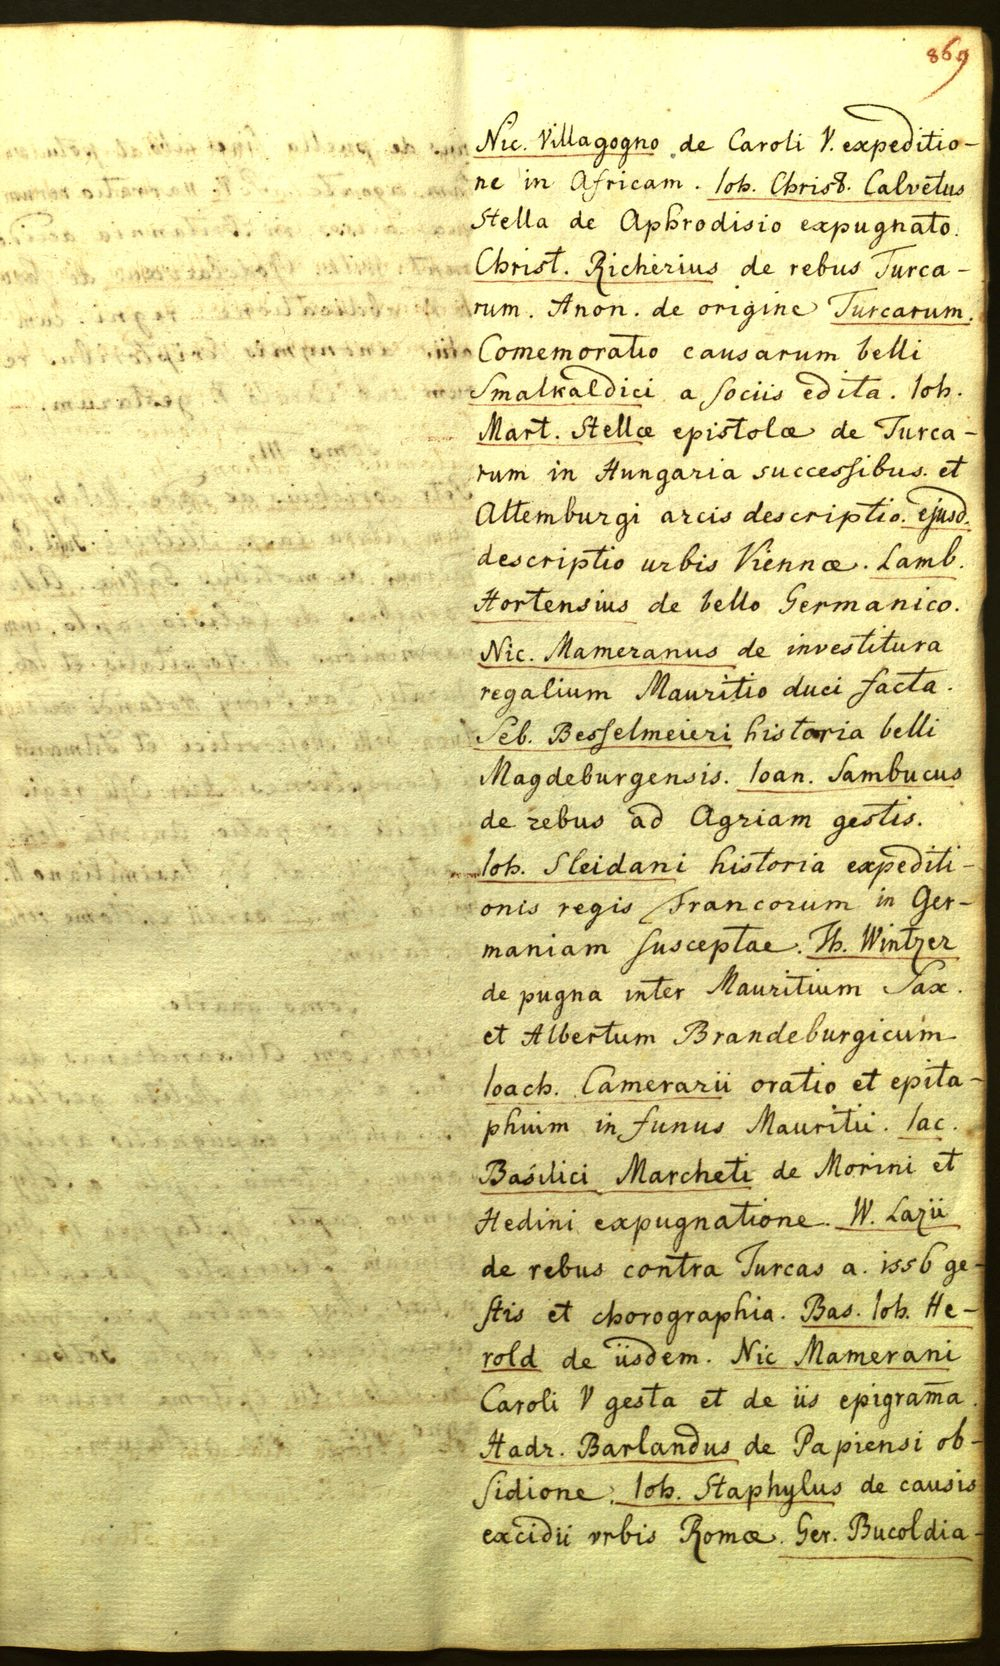 869
Nic. Villagogno de Caroli V. expeditio-
ne in Africam. Ioh. Christ. Calvetus
Stella de Aphrodisio expugnato.
Christ. Richerius de rebus Turca-
rum. Anon. de origine Turcarum.
Comemoratio causarum belli
Smalkaldici a sociis edita. Ioh.
Mart. Stellæ epistolæ de Turca-
rum in Hungaria successibus et
Altemburgi arcis descriptio. ejusd.
descriptio urbis Viennæ. Lamb.
Hortensius de bello Germanico.
Nic. Mameranus de investitura
regalium Mauritio duci facta.
Seb. Besselmeieri historia belli
Magdeburgensis. Ioan. Sambucus
de rebus ad Agriam gestis.
Ioh. Sleidani historia expediti-
onis regis Francorum in Ger-
maniam susceptae. Th. Wintzer
de pugna inter Mauritium Sax.
et Albertum Brandeburgicum
Ioach. Camerarii oratio et epita-
phium in funus Mauritii. Iac.
Basilici Marcheti de Morini et
Hedini expugnatione. W. Lazii
de rebus contra Turcas a. 1556 ge-
stis et chorographia. Bas. Ioh. He-
rold de iisdem. Nic Mamerani
Caroli V gesta et de iis epigram̄a.
Hadr. Barlandus de Papiensi ob-
sidione. Ioh. Staphylus de causis
excidii vrbis Romæ. Ger. Bucoldia-